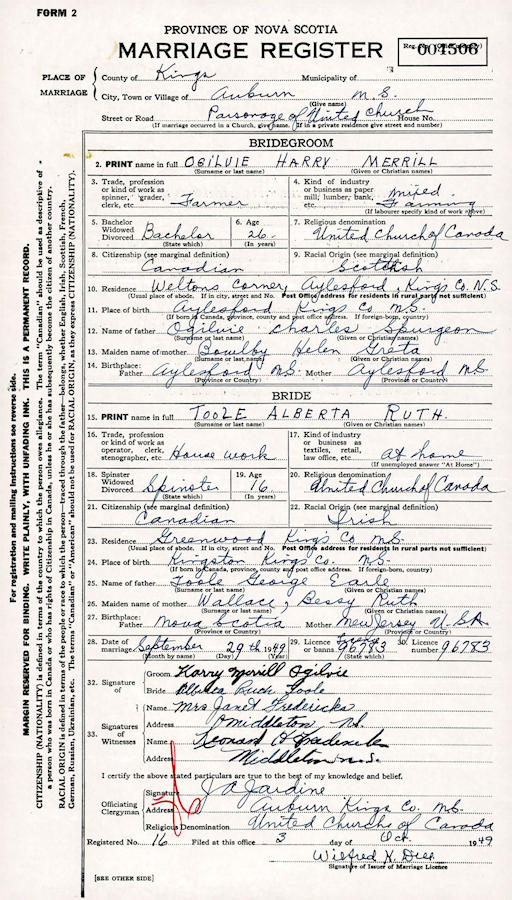 FORM 2
PROVINCE OF NOVA SCOTIA
MARRIAGE REGISTER
Reg. No. (Office use only) 004506
PLACE OF MARRIAGE
County of Kings Municipality of
City, Town or Village of Auburn N.S.
(Give name)
Street or Road Parsonage of United Church House No.
(If marriage occurred in a Church, give name. If in a private residence give street and number)
BRIDEGROOM
2. PRINT name in full OGILVIE HARRY MERRILL
(Surname or last name) (Given or Christian names)
3. Trade, profession or kind of work as spinner, grader, clerk, etc. Farmer
4. Kind of industry or business as paper mill; lumber; bank, etc. Mixed Farming
(If labourer specify kind of work above)
5. Bachelor Widowed Divorced Bachelor
(State which)
6. Age 26
(In years)
7. Religious denomination
United Church of Canada
8. Citizenship (see marginal definition)
Canadian
9. Racial Origin (see marginal definition)
Scottish
10. Residence Weltons Corner Aylesford, Kings Co N.S.
(Usual place of abode. If in city, street and No. Post Office address for residents in rural parts not sufficient)
11. Place of birth Aylesford Kings Co N.S.
(If born in Canada, province, county and post office address. If foreign-born, country)
12. Name of father Ogilvie Charles Spurgeon
(Surname or last name) (Given or Christian names)
13. Maiden name of mother Bowlby Helen Greta
(Surname or last name) (Given or Christian names)
14. Birthplace: Father Aylesford N.S. Mother Aylesford N.S.
(Province or Country) (Province or Country)
BRIDE
15. PRINT name in full TOOLE ALBERTA RUTH.
(Surname or last name) (Given or Christian names)
16. Trade, profession or kind of work as operator, clerk, stenographer, etc. House work
17. Kind of industry or business as textiles, retail, law office, etc At home
(If unemployed answer "At Home")
18. Spinster Widowed Divorced Spinster
(State which)
19. Age 16
(In years)
20. Religious denomination
United Church of Canada
21. Citizenship (see marginal definition)
Canadian
22. Racial Origin (see marginal definition)
Irish
23. Residence Greenwood Kings Co N.S.
(Usual place of abode. If in city, street and No. Post Office address for residents in rural parts not sufficient)
24. Place of birth Kingston Kings Co. N.S.
(If born in Canada, province, county and post office address. If foreign-born, country)
25. Name of father Toole George Earle
(Surname or last name) (Given or Christian names)
26. Maiden name of mother Wallace, Bessy Ruth
(Surname or last name) (Given or Christian names)
27. Birthplace: Father Nova Scotia Mother New Jersey U.S.A
(Province or Country) (Province or Country)
28. Date of marriage September 29th 1949
(Month by name) (Day)
29. Licence or banns. 96783
(State which)
30. Licence number 96783
32. Signature of
Groom Harry Merrill Ogilvie
Bride Alberta Ruth Toole
33. Signatures of Witnesses
Name Mrs Janet Fredericks
Address Middleton, N.S.
Name Leonard Fredericks
Address Middleton N.S.
I certify the above stated particulars are true to the best of my knowledge and belief.
Officiating Clergyman
Signature J A Jardine
Address Auburn Kings Co. N.S.
Religious Denomination United Church of Canada
Registered No. 16 Filed at this office 3 day of Oct. 1949
Wilfred K.
Signature of Issuer of Marriage Licence
[SEE OTHER SIDE]
For registration and mailing instructions see reverse side.
MARGIN RESERVED FOR BINDING. WRITE PLAINLY, WITH UNFADING INK. THIS IS A PERMANENT RECORD.
CITIZENSHIP (NATIONALITY) is defined in terms of the country to which the person owes allegiance. The term "Canadian" should be used as descriptive of
a person who was born in Canada or who has rights of Citizenship in Canada, unless he or she has subsequently become the citizen of another country.
RACIAL ORIGIN is defined in terms of the people or race to which the person—traced through the father—belongs, whether English, Irish, Scottish, French,
German, Russian, Ukrainian, etc. The terms "Canadian" or "American" should not be used for RACIAL ORIGIN, as they express CITIZENSHIP (NATIONALITY).